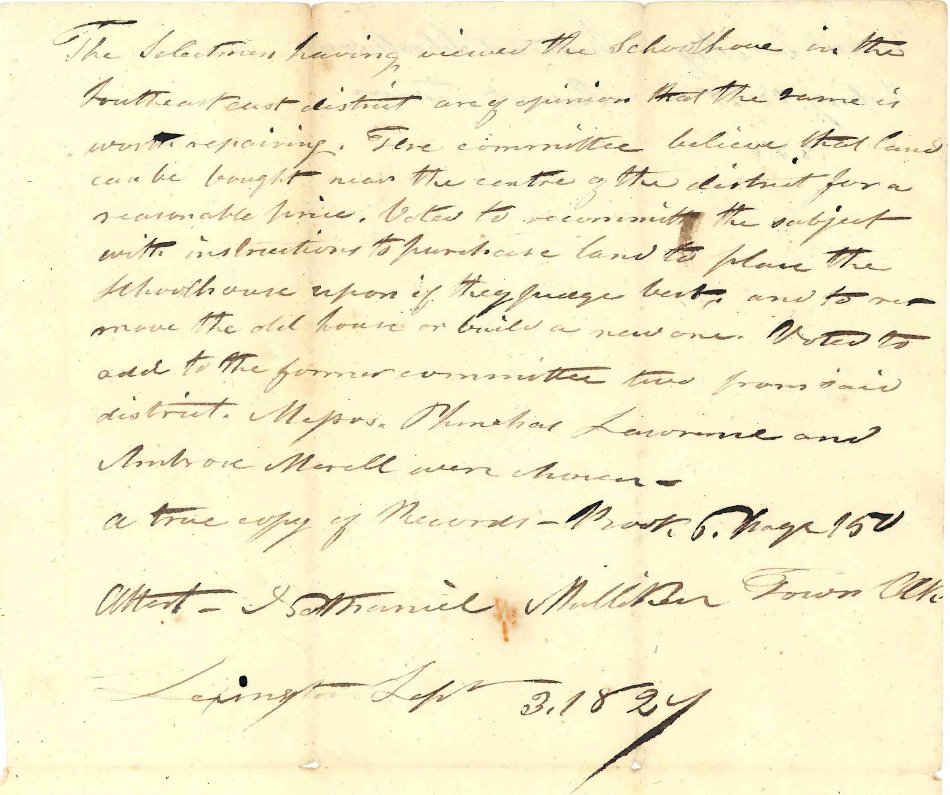 The Selectmen having viewed the Schoolhoue in the
Southeast east district are of opinion that the same is
worth repairing. The committee believe that land
can be bought near the centre of the district for a
reasonable price. Voted to recommitt the subject
with instructions to purchase land to place the
Schoolhouse upon if they judge best, and to re-
move the old house or build a new one. Voted to
add to the former committee two from said
district. Messrs. Phinehas Lawrence and
Ambrose Merell were chosen -
a true copy of Records - Book 6. Page 150
Attest - Nathaniel Mulliken Town Clk
Lexington Sept 3. 1827